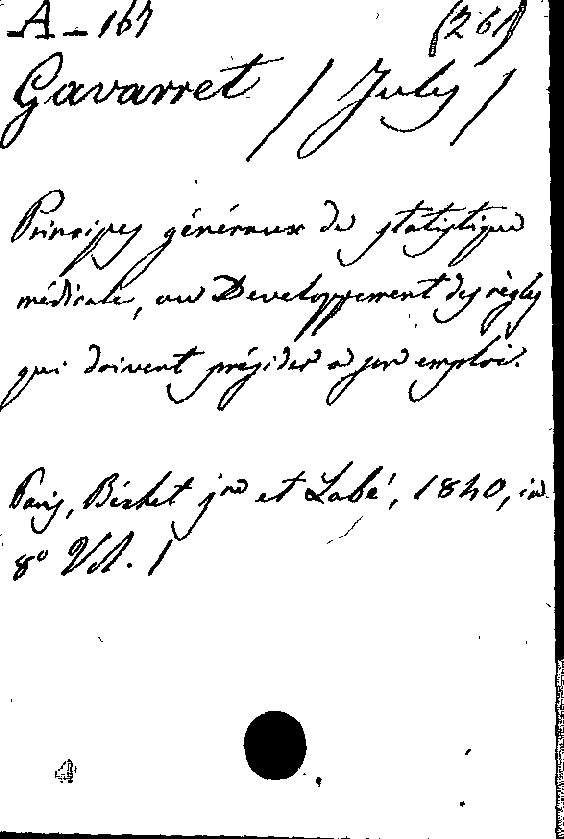 A-167 (261)
Gavarret (July)
Principes généraux de statistique
médicale, ou Developpement des règles
qui doivent présider a son emploi.
Paris, Béchet jne et Labé, 1840, in
8º Vol. 1